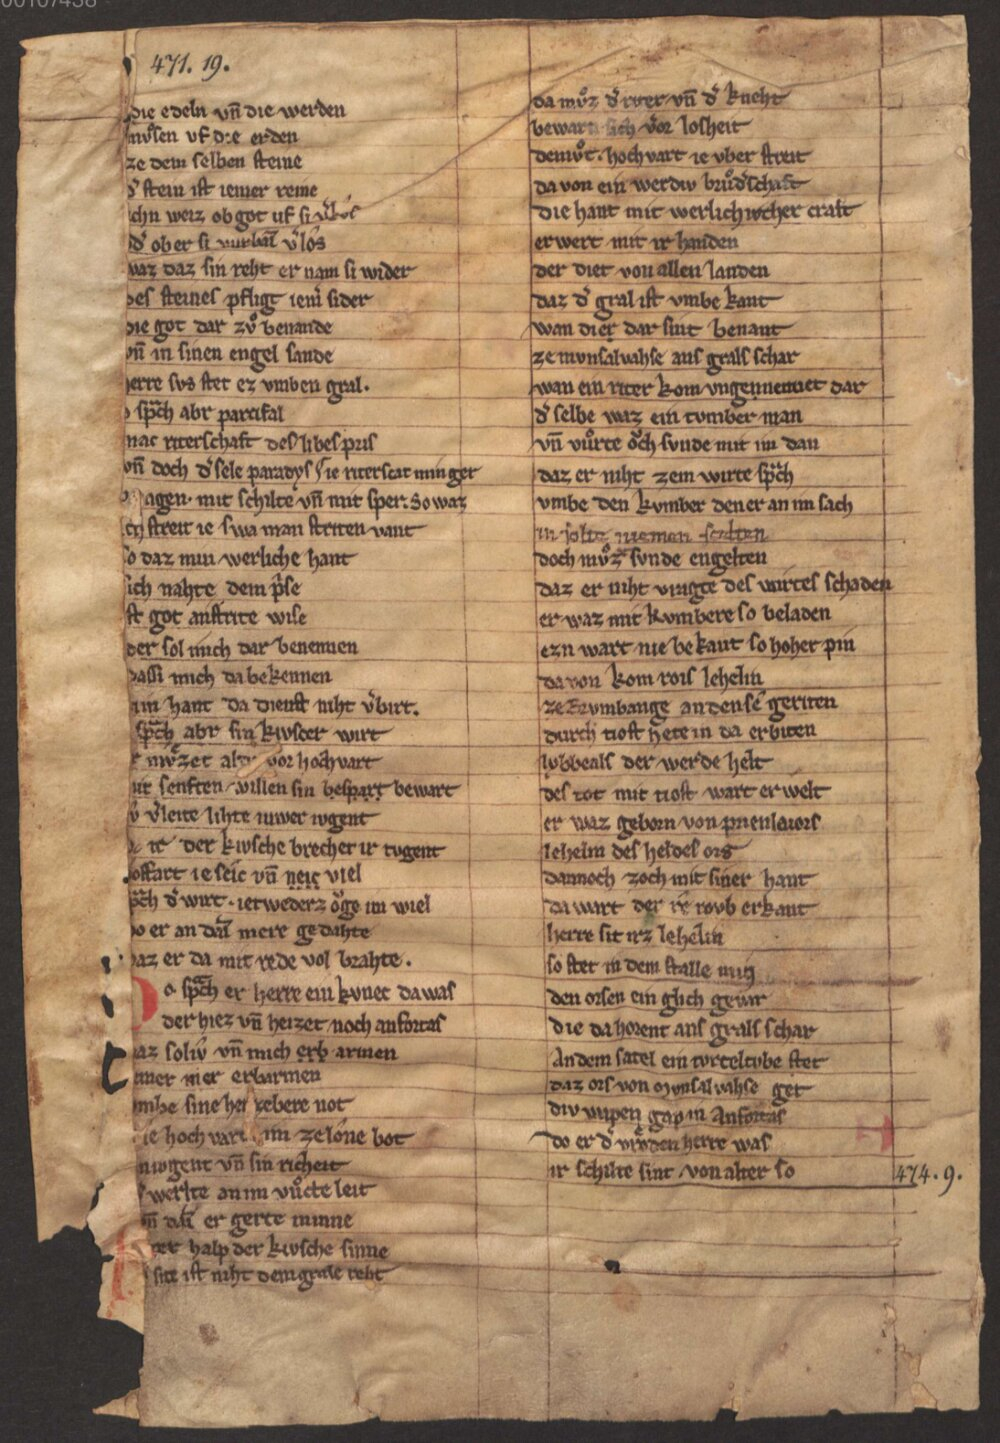 471. 19.
die edeln vn̄ die werden
mvͦsen vf die erden
ze dem selben steine
d͛ stein ist iemer reine
ichn weiz ob got vf si
d͛ ob er si v͛lôs
waz daz sin reht er nam si wider
des steines pfligt iem͛ sider
die got dar zvͦ benande
vn̄ in sinen engel sande
herre svs stet ez vmben gral.
sp̃ch abr parcifal
mac riterschaft des libes pris
vn̄ doch d͛ sele paradys
iagen mit schilte vn̄ mit sper. So waz
ich streit ie swa man striten vant
so daz min werliche hant
sich nahte dem p͛se
ist got anstrite wise
der sol mich dar benennen
dassi mich da bekennen
min hant da dienst niht v͛birt.
sp̃ch abr sin kivscer wirt
ir mvͤzet vor hochvart
mit senften willen sin bewart
v͛leite lihte iuwer ivgent
ir der kivsche brechet ir tvgent
hoffart ie seic vn̄ neic viel
sp̃ch d͛ wirt. ietweder oͮge im wiel
do er an daz mere gedahte
daz er da mit rede vol brahte.
Do sp̃ch er herre ein kvnec da was
der hiez vn̄ heizet noch anfortas
daz sol iv vn̄ mich erb armen
imer mer erbarmen
vmbe sine hertzebere not
die hochvart im ze lône bot
sin ivgent vn̄ sin richeit
d͛ werlte an im vuͦcte leit
vn̄ daz er gerte minne
vzer halp der kivsche sinne
d͛ site ist niht dem grale reht
da mvͦz d͛ riter vn̄ d͛ kneht
bewart sich vor losheit
demvͦt. hochvart ie vber streit
da von ein werdiv brvͦd͛schaft
die hant mit werlichicher craft
erwert mit ir handen
der diet von allen landen
daz d͛ gral ist vmbe kant
wan dier dar sint benant
ze mvnsalvahse ans grals schar
wan ein riter kom vngennennet dar
d͛ selbe waz ein tvmber man
vn̄ vuͦrte oͮch svnde mit im dan
daz er niht zem wirte sp̃ch
vmbe den kvmber den er an im sach
in solte niemen schelten
doch mvͦz svnde engelten
daz er niht vragte des wirtes schaden
er waz mit kvmbere so beladen
ezn wart nie bekant so hoher pin
da von kom rois lehelin
ze Brvmbange an den se geriten
durch tiost hete in da erbiten
lybbeals der werde helt
des tot mit tiost wart erwelt
er waz geborn von prienlaiors
lehelin des heldes ors
dannoch zoch mit siner hant
da wart der re rovb erkant
herre sit irz lehelin
so stet in dem stalle min
den orsen ein glich gevar
die da horent ans grals schar
An dem satel ein tvrteltvbe stet
daz ors von mvnsalvahse get
div wapen gap in Anfortas
do er d͛ vrovden herre was
ir schilte sint von alter so
474. 9.